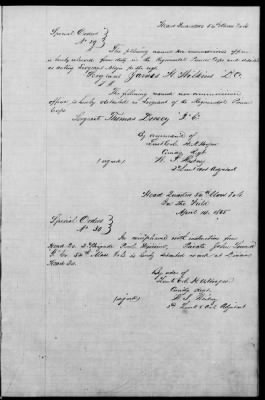 Head Quarters 54th Mass Vols
Special Order
No 29
The following named non commissioned officer
is hereby relieved from duty in the Regimental Pioneer Corps and detailed
as acting Sergeant Major of the regt
Sergeant James H. Watkins "D" Co.
II
The following named non commissioned
officer is hereby detailed as Sergeant of the Regimental Pioneer
Corps
Sergeant Thomas "F" Co
By command of
Lieut Col. H. N. Hooper
Comdg Regt
(signed)
2d Lieut & Act Adjutant
Head Quarters 54th Mass Vols
In the Field
April 14, 1865
Special Order
No 30
In compliance with instructions from
Head Qrs Brigade Division, Private John
Co. 54th Mass Vols is hereby detailed as at Division
Head Qrs.
By order of
Lieut Col. H. N. Hooper
Comdg Regt.
(signed)
2d Lieut & Act Adjutant